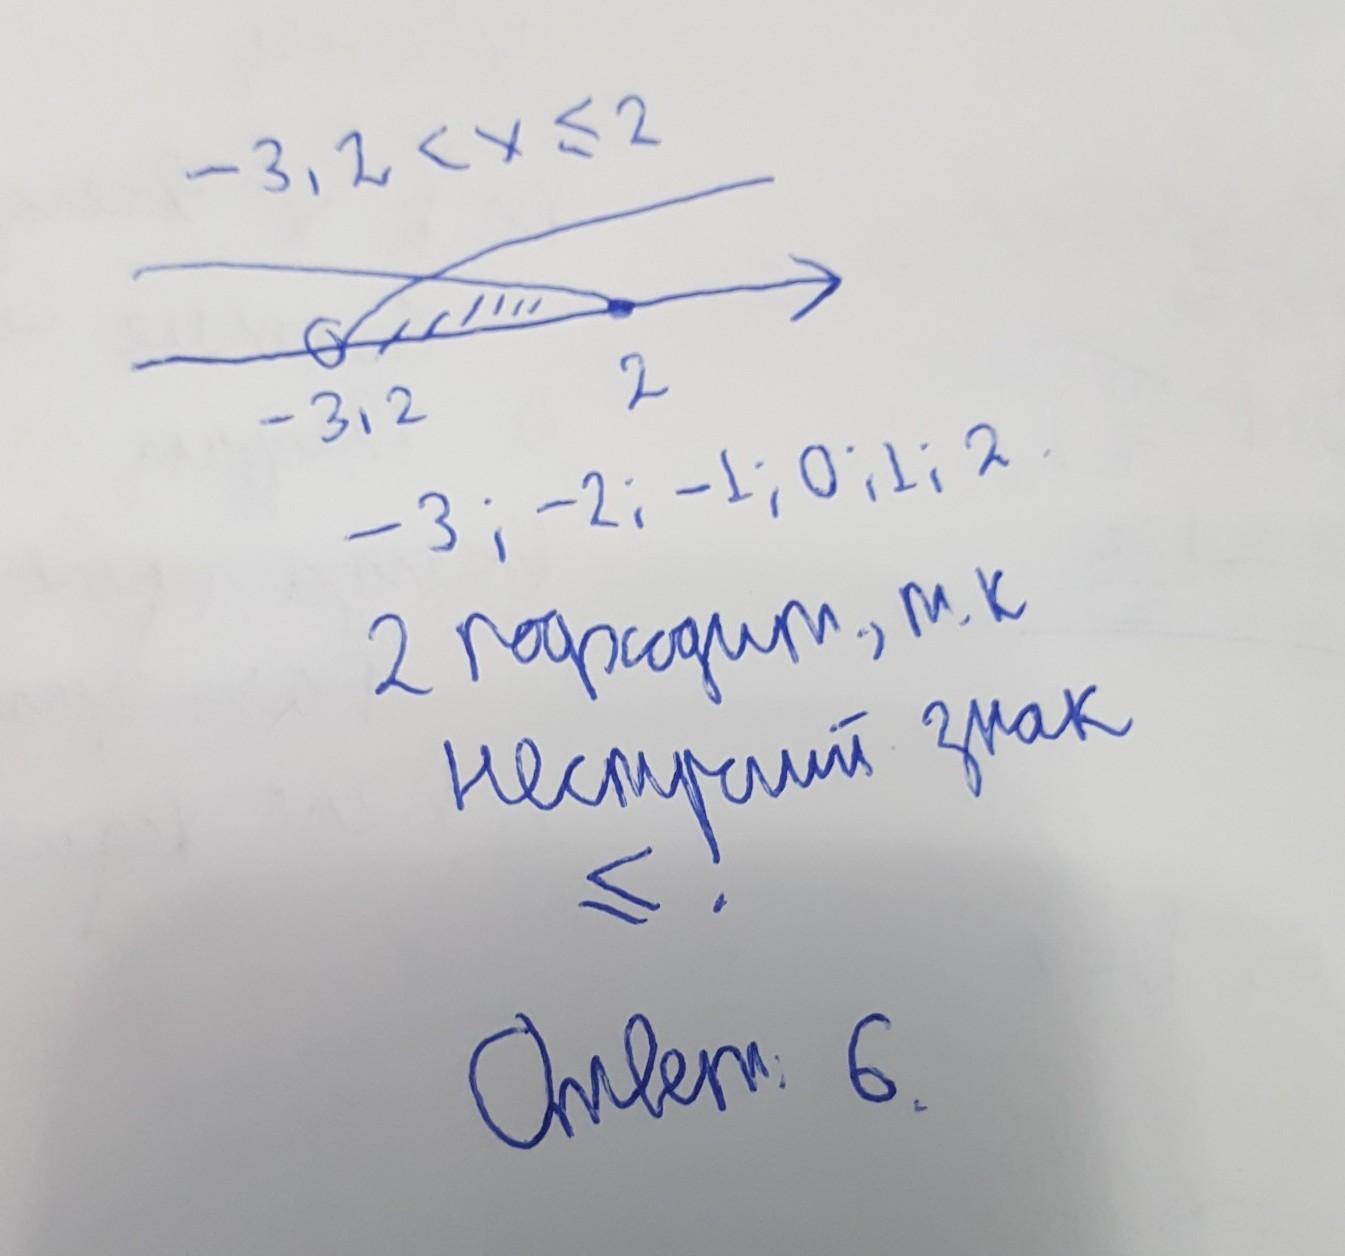 -3,2 < x ≤ 2
-3,2 2
-3; -2; -1; 0; 1; 2.
2 подходит, т.к
нестрогий знак
≤ !
Ответ: 6.